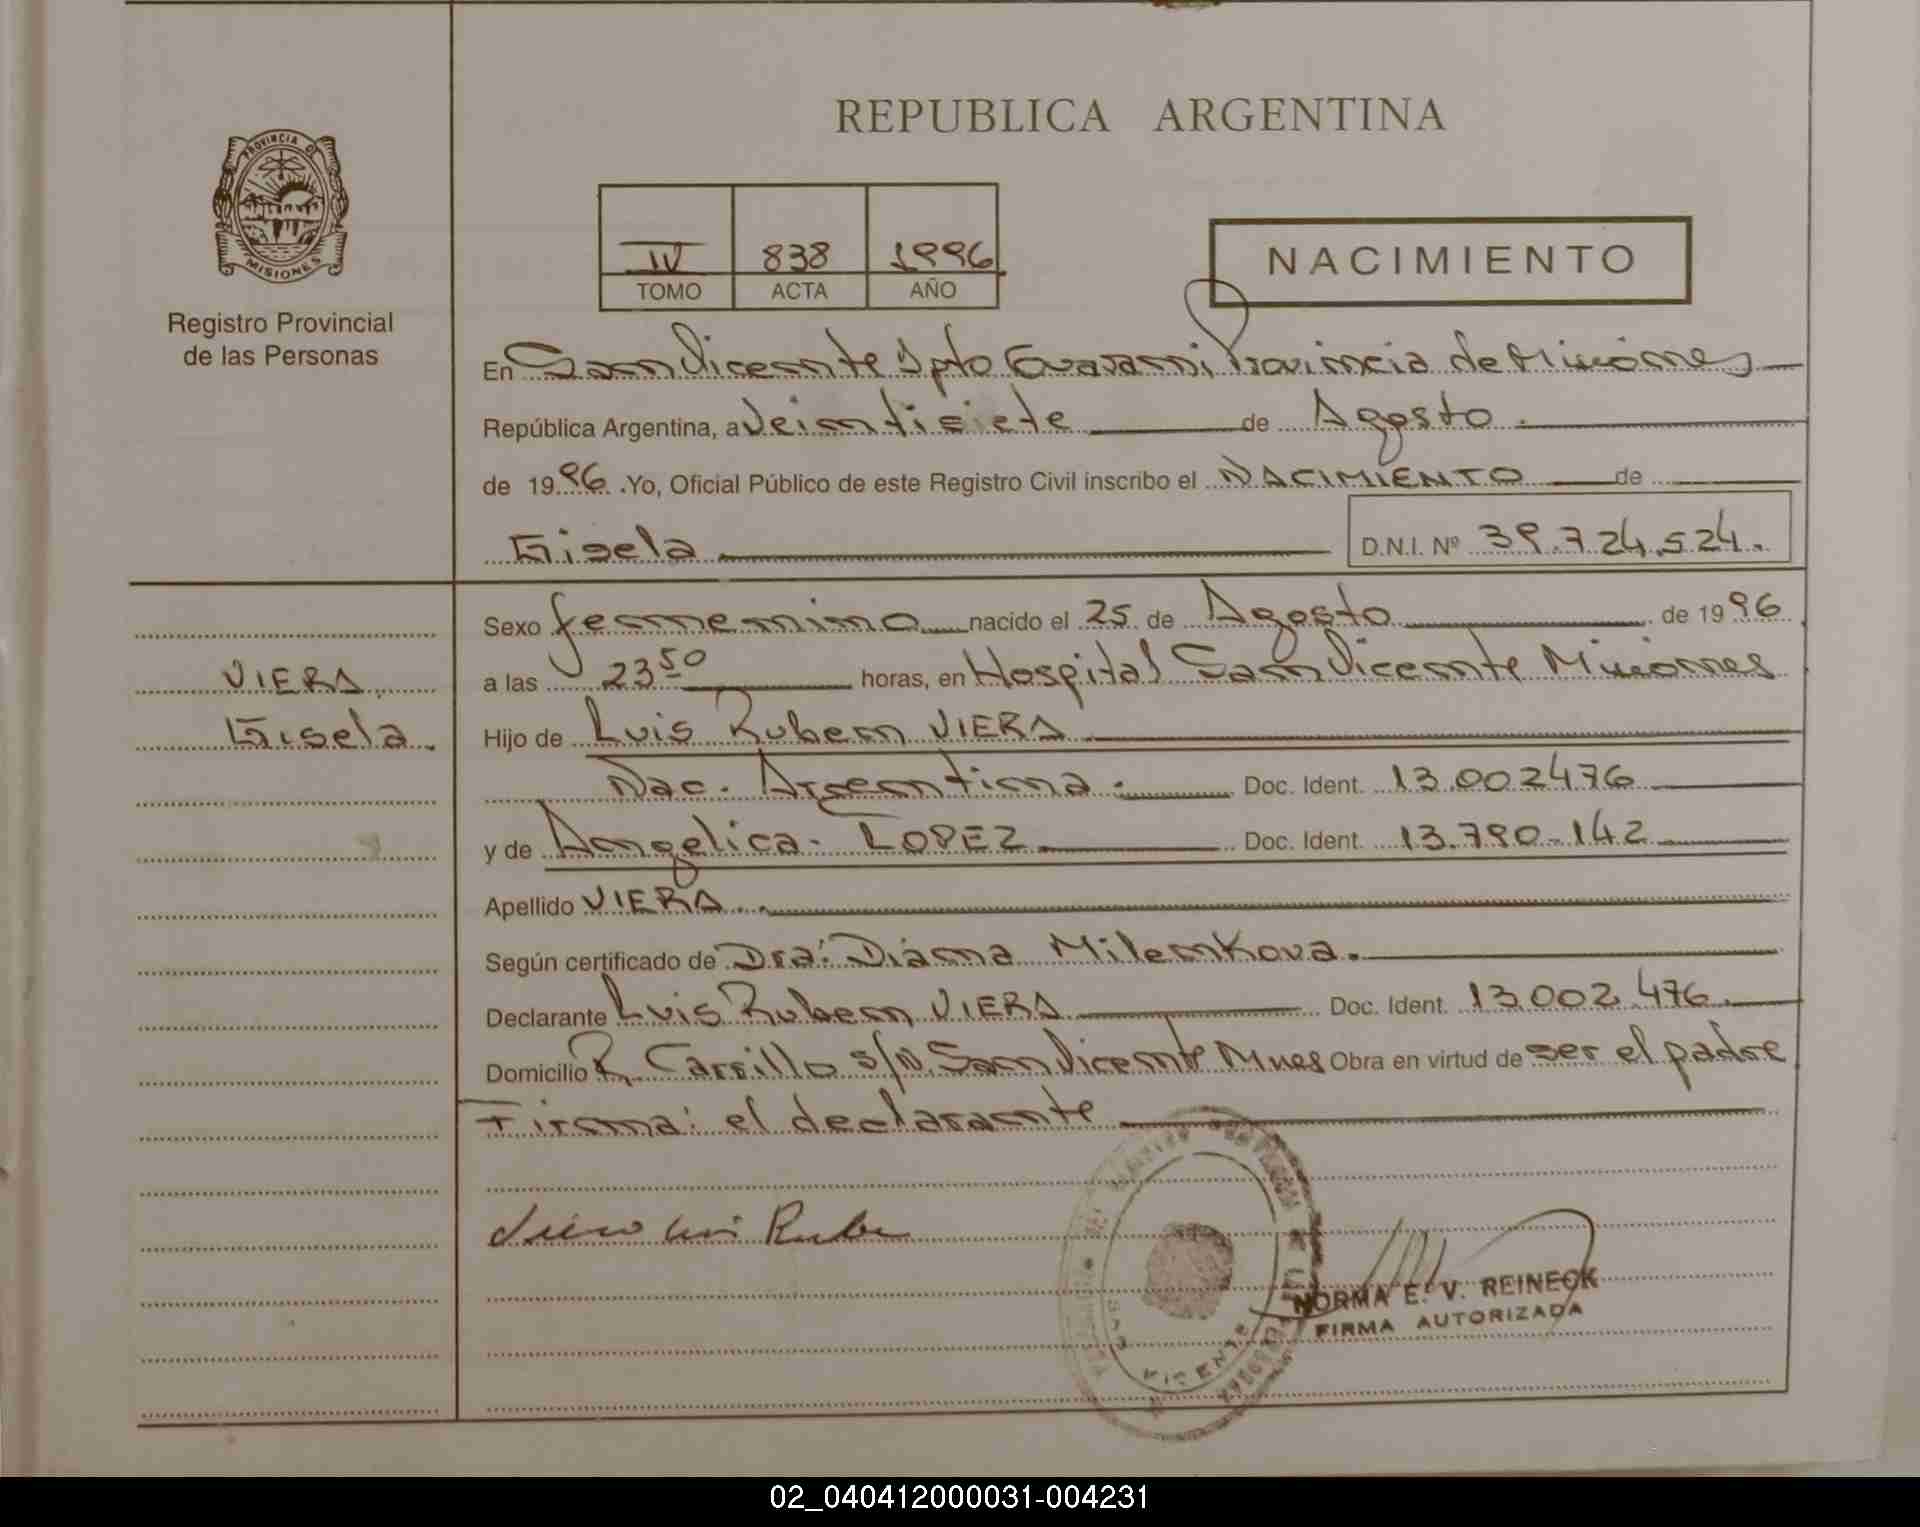 REPUBLICA ARGENTINA
PROVINCIA DE
MISIONES
Registro Provincial
de las Personas
IV 838 1996
TOMO ACTA AÑO
NACIMIENTO
En San Vicente Dpto Guarani, Provincia de Misiones
República Argentina, a Veintisiete de Agosto.
de 1996. Yo, Oficial Público de este Registro Civil inscribo el NACIMIENTO de
Gisela D.N.I. Nº 39.724.524.
Sexo femenino nacido el 25 de Agosto de 1996
VIERA, a las 23 50 horas, en Hospital San Vicente Misiones
Gisela. Hijo de Luis Ruben VIERA
Nac. Argentina. Doc. Ident. 13.002476
y de Angelica. LOPEZ Doc. Ident. 13.790-142
Apellido VIERA.
Según certificado de Dra: Diána Milenkova.
Declarante Luis Ruben VIERA Doc. Ident. 13.002.476.
Domicilio R. Carrillo s/N. San Vicente Mnes Obra en virtud de ser el padre
Firma: el declarante
Viera Luis Rube
VICENTE
NORMA E. V. REINECK
FIRMA AUTORIZADA
02_040412000031-004231